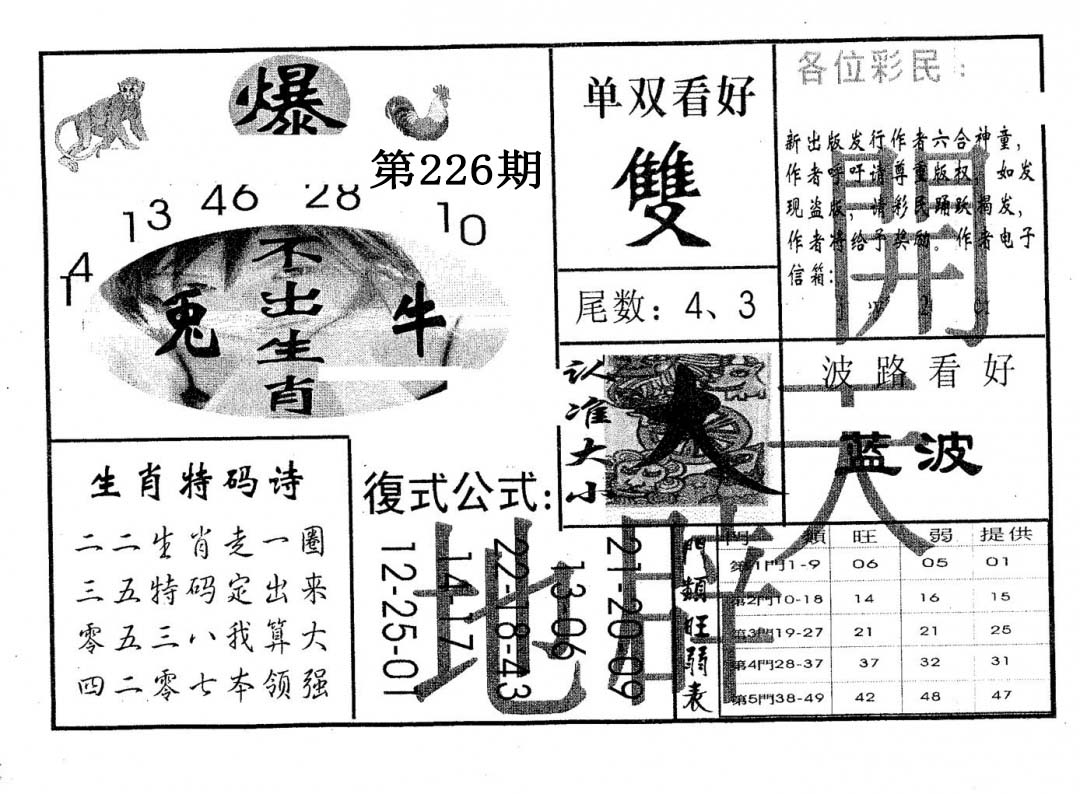 爆
第226期
4 13 46 28 10
不出生肖
兔
牛
单双看好
雙
尾数：4、3
各位彩民：
新出版发行作者六合神童，
作者呼吁请尊重版权，如发
现盗版，请彩民踊跃揭发，
作者将给予奖励。作者电子
信箱：
認准大小
大
波路看好
蓝波
生肖特码诗
二二生肖走一圈
三五特码定出来
零五三八我算大
四二零七本领强
復式公式：
12-25-01
14-17
22-18-43
13-06
21-20-09
門類旺弱表
門類 旺 弱 提供
第1門1-9 06 05 01
第2門10-18 14 16 15
第3門19-27 21 21 25
第4門28-37 37 32 31
第5門38-49 42 48 47
開
天
地